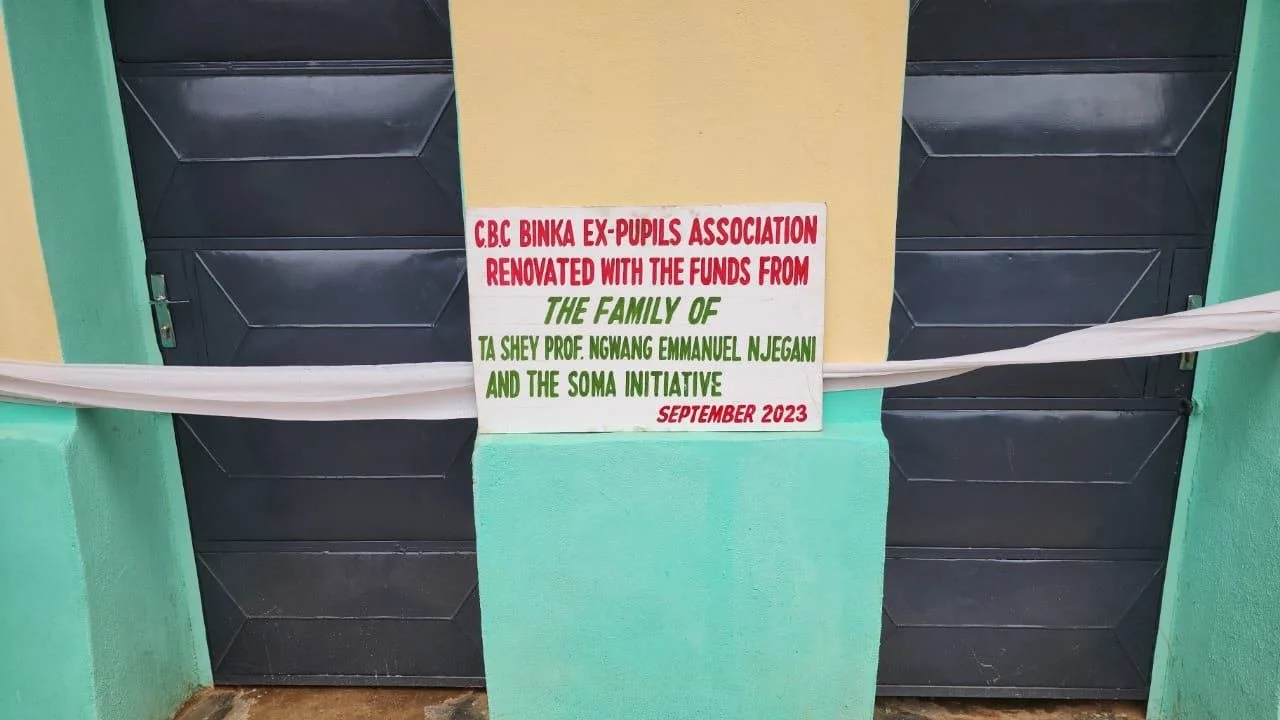 C.B.C BINKA EX-PUPILS ASSOCIATION
RENOVATED WITH THE FUNDS FROM
THE FAMILY OF
TA SHEY PROF. NGWANG EMMANUEL NJEGANI
AND THE SOMA INITIATIVE
SEPTEMBER 2023